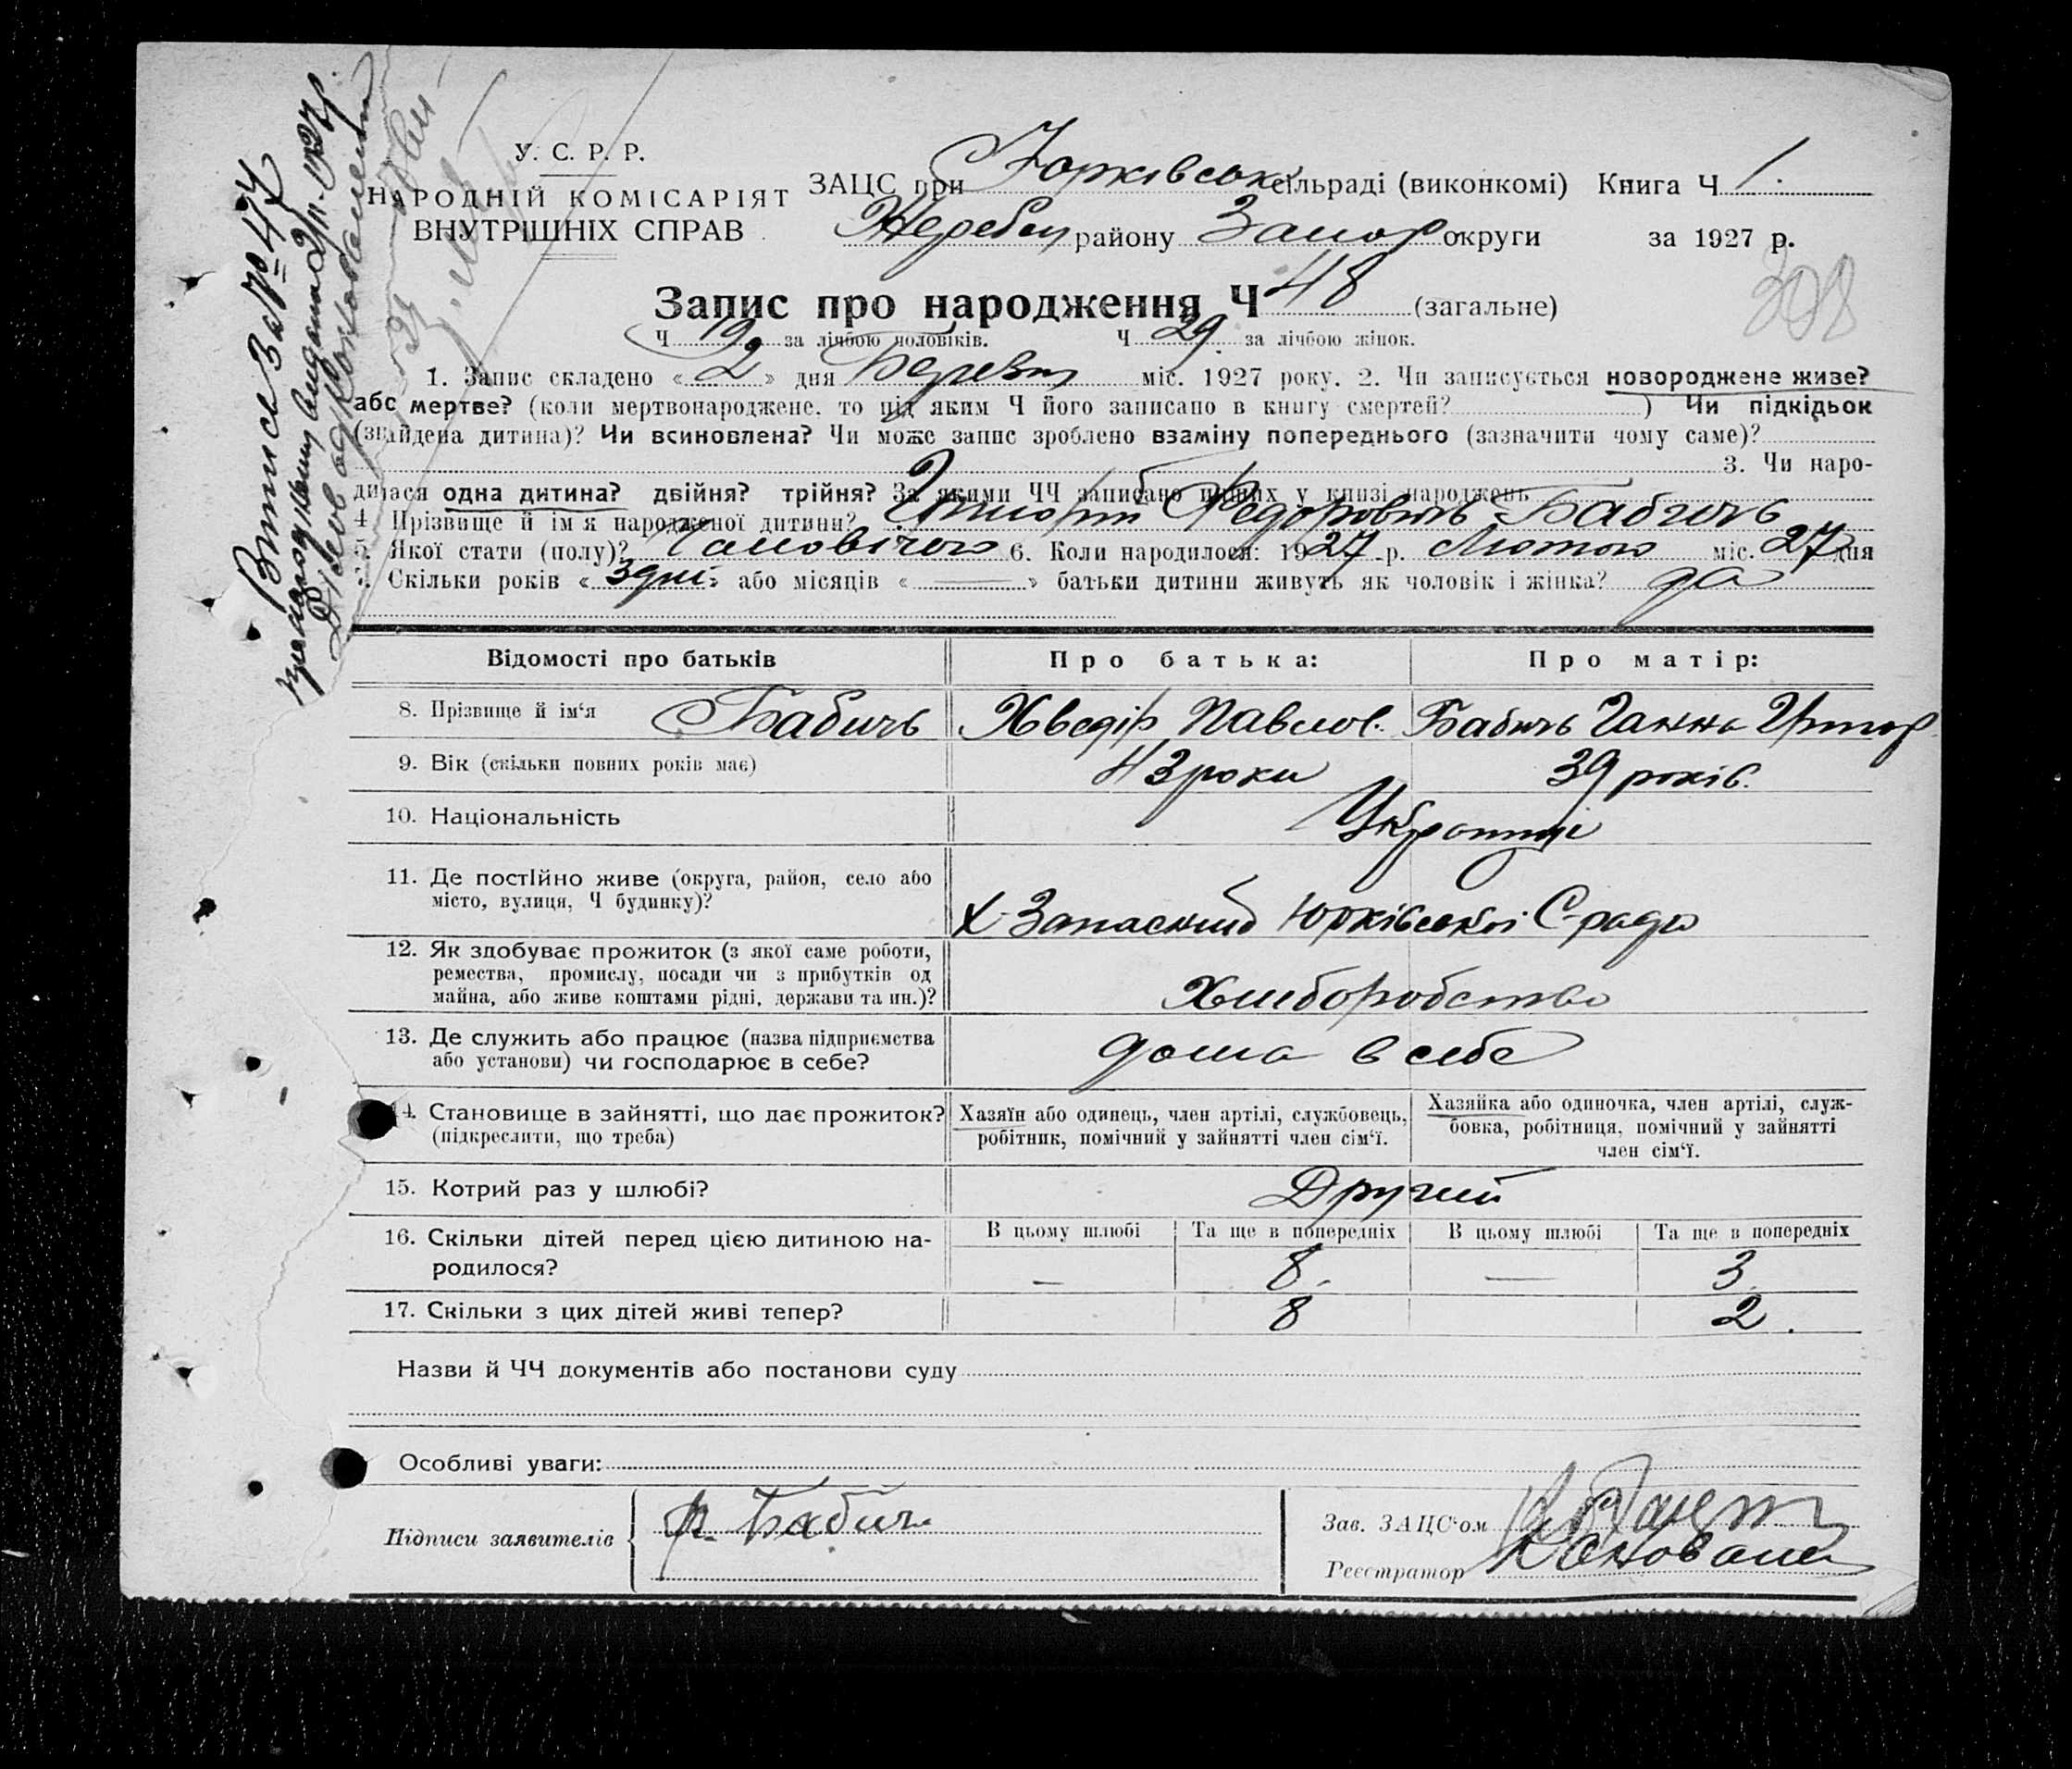 У. С. Р. Р.
НАРОДНІЙ КОМІСАРІЯТ
ВНУТРІШНІХ СПРАВ
ЗАЦС при Юрківськ сільраді (виконкомі) Книга Ч 1.
Жеребец району Запор округи за 1927 р.
308
Запис про народження Ч 48 (загальне)
Ч 19 за лічбою чоловіків. Ч 29. за лічбою жінок.
1. Запис складено « 2 » дня Березня міс. 1927 року. 2. Чи записується новороджене живе?
або мертве? (коли мертвонароджене, то під яким Ч його записано в книгу смертей? ) Чи підкідьок
(знайдена дитина)? Чи всиновлена? Чи може запис зроблено взаміну попереднього (зазначити чому саме)?
3. Чи наро-
дилася одна дитина? двійня? трійня? За якими ЧЧ записано інших у книзі народжень
4 Прізвище й ім'я народженої дитини? Григорій Федоровичь Бабичь
5. Якої стати (полу)? Чоловічого 6. Коли народилося: 1927 р. Лютого міс. 27 дня
7. Скільки років « 3 дні » або місяців « — » батьки дитини живуть як чоловік і жінка? да
Відомості про батьків Про батька: Про матір:
8. Прізвище й ім‘я Бабичь Хведір Павлов. Бабичь Ганна Григор
9. Вік (скільки повних років має) 43 роки 39 років.
10. Національність Українці
11. Де постійно живе (округа, район, село або
місто, вулиця, Ч будинку)? Х. Запасний Юрківської С-ради
12. Як здобуває прожиток (з якої саме роботи,
ремества, промислу, посади чи з прибутків од
майна, або живе коштами рідні, держави та ин.)? Хліборобство
13. Де служить або працює (назва підприємства
або установи) чи господарює в себе? дома в себе
14. Становище в зайнятті, що дає прожиток? Хазяїн або одинець, член артілі, службовець, Хазяйка або одиночка, член артілі, служ-
(підкреслити, що треба) робітник, помічний у зайнятті член сім‘ї. бовка, робітниця, помічний у зайнятті
член сім‘ї.
15. Котрий раз у шлюбі? Другий
16. Скільки дітей перед цією дитиною на- В цьому шлюбі Та ще в попередніх В цьому шлюбі Та ще в попередніх
родилося? — 8. — 3.
17. Скільки з цих дітей живі тепер? 8 2.
Назви й ЧЧ документів або постанови суду
Особливі уваги:
Підписи заявителів Бабич
Зав. ЗАЦС‘ом
Реєстратор
Виписє За № 47